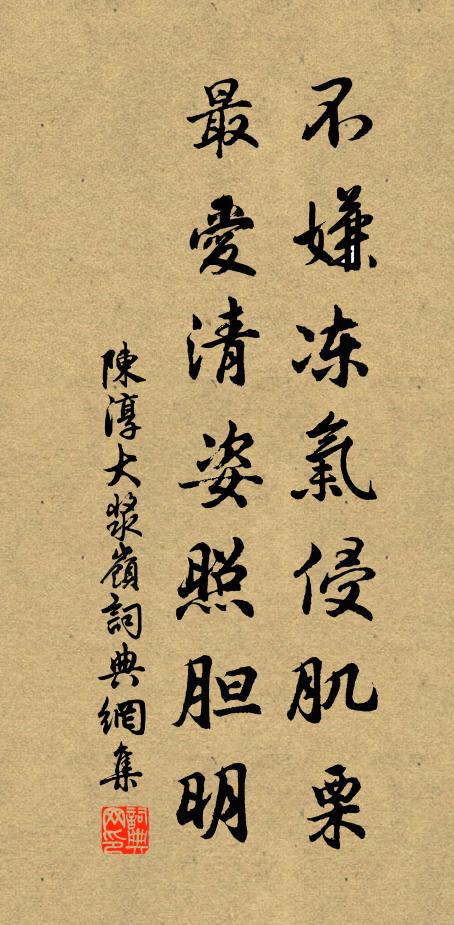 不嫌冻氣侵肌栗
最愛清姿照胆明
陳淳大漿嶺詞典網集
詞典网印